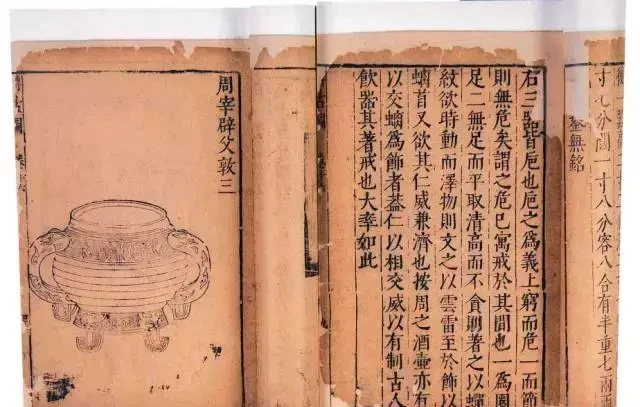 寸七分闊一寸八分容八合有半重七兩
無銘
右三器皆巵也巵之爲義上窮而危一而節
則無危矣謂之巵已寓戒於其間也 爲圈
足二無足而平取清高而不貪則著之以蟬
紋欲時動而澤物則文之以雲雷至於飾以
螭首又欲其仁威兼濟也按周之酒壺亦有
以交螭爲飾者葢仁以相交威以有制古人
飲器其著戒也大率如此
周宰辟父敦三